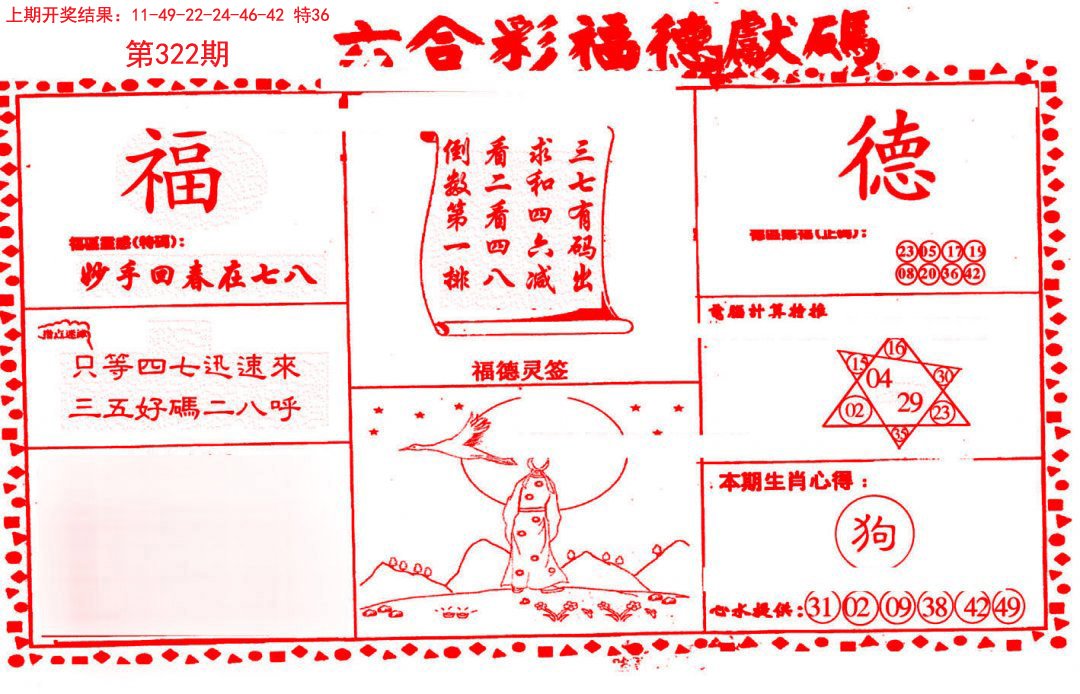 上期开奖结果：11-49-22-24-46-42 特36
第322期
六合彩福德獻碼
福
福區靈感(特碼)：
妙手回春在七八
指点迷津
只等四七迅速來
三五好碼二八呼
三七有码出
求和四六减
看二看四八
倒数第一排
福德灵签
德
23 05 17 19
08 20 36 42
電腦計算特推
16
15
30
04
02
29
23
35
本期生肖心得：
狗
心水提供：31 02 09 38 42 49